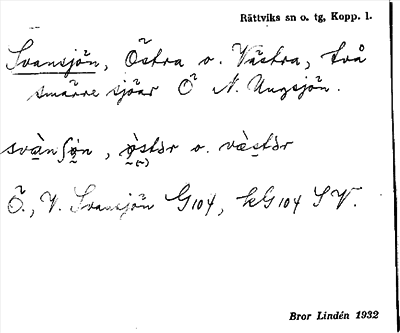 Rättviks sn o. tg, Kopp. l.
Svansjön, Östra o. Västra, två
smärre sjöar Ö N. Ungsjön.
svànʃö̀n, ö̀stər o. væ̀stər
Ö., V. Svansjön G104, kG104 SV.
Bror Lindén 1932